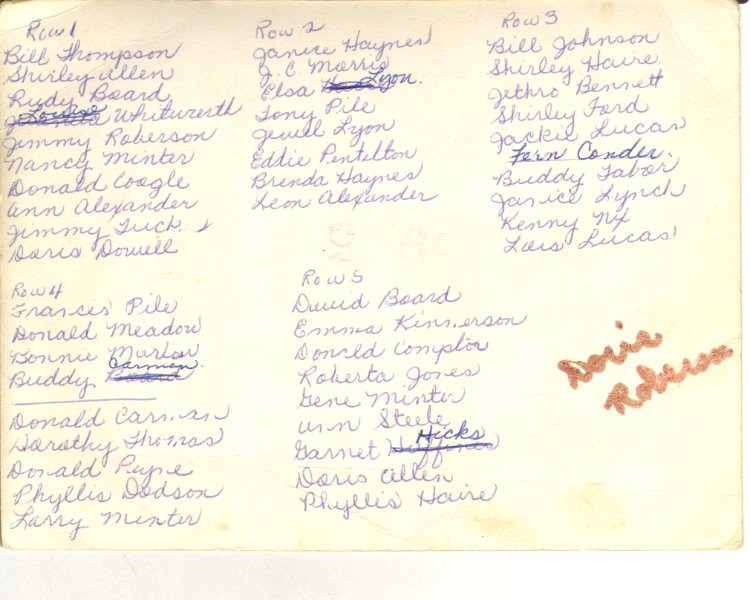 Row 1
Bill Thompson
Shirley Allen
Rudy Board
Louise Whitworth
Jimmy Roberson
Nancy Minter
Donald Coogle
Ann Alexander
Jimmy Tuck
Doris Dowell
Row 2
Janice Haynes
J. C. Morris
Elsa Lyon.
Tony Pile
Jewell Lyon
Eddie Pentelton
Brenda Haynes
Leon Alexander
Row 3
Bill Johnson
Shirley Haire
Jethro Bennett
Shirley Ford
Jackie Lucas
Fern Conder.
Buddy Tabor
Janice Lynch
Kenny Nix
Lois Lucas
Row 4
Frances Pile
Donald Meadow
Bonnie Marlow
Buddy Carman.
Donald Carman
Dorothy Thomas
Donald Payne
Phyllis Dodson
Larry Minter
Row 5
David Board
Emma Kinnerson
Donald Compton
Roberta Jones
Gene Minter
Ann Steele
Garnet Hicks
Doris Allen
Phyllis Haire
Doris
Roberson